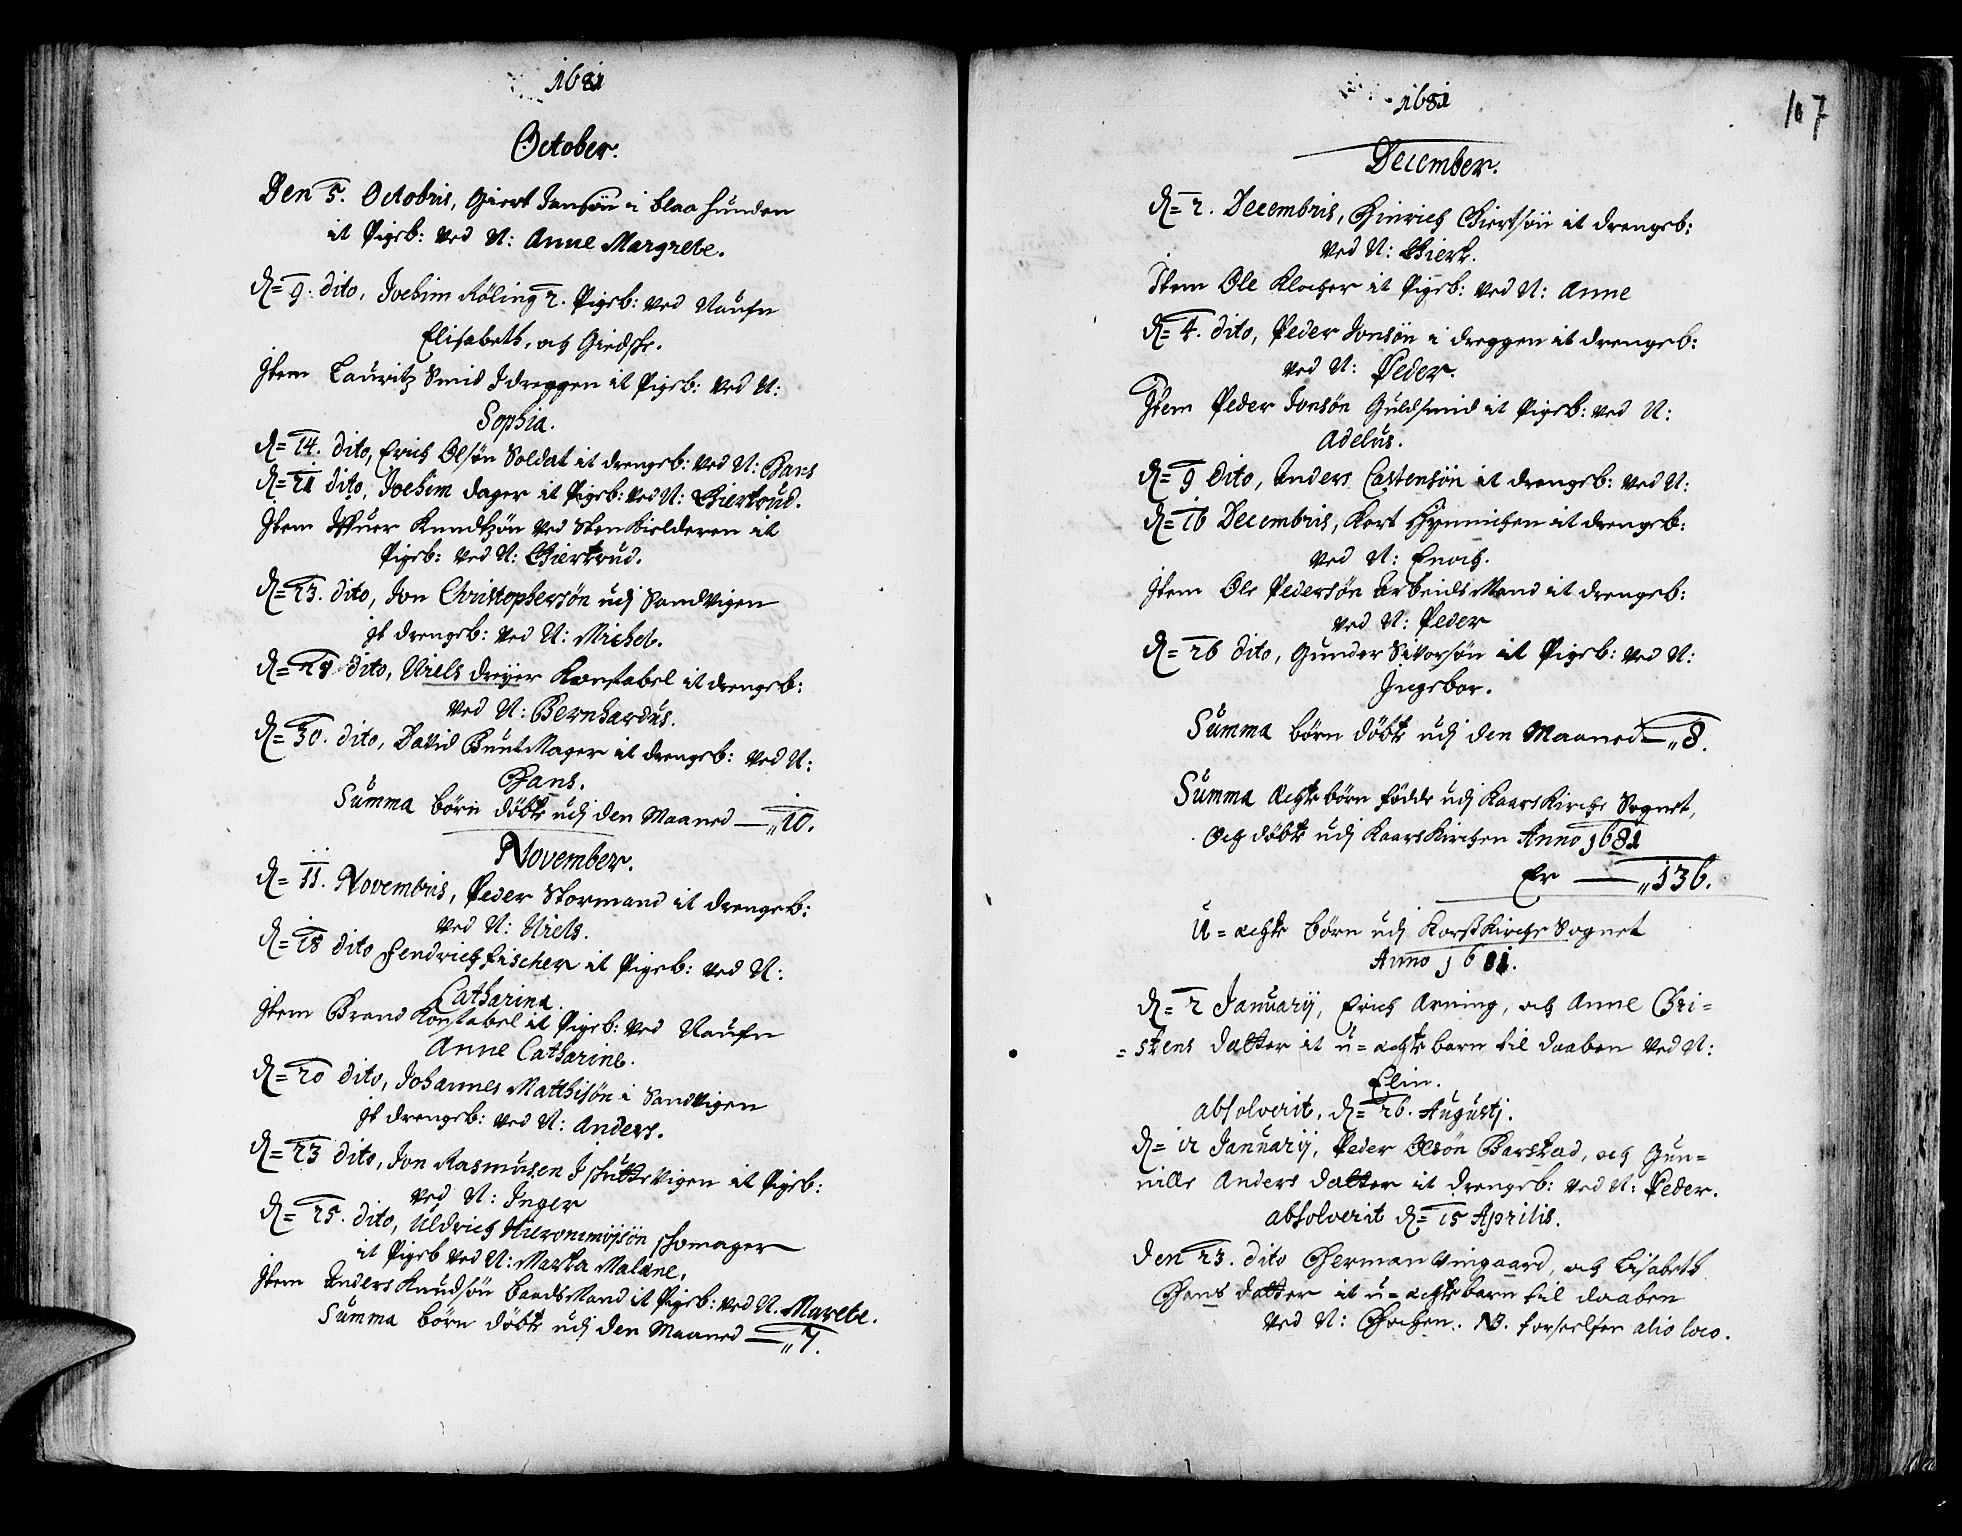 1681
October.
Den 5. Octobris, Giert Jansøn i blaa hunden
it Pigeb: ved N: Anne Margrete.
d= 9. dito, Jochim Röling 2. Pigeb: ved Naufn
Elisabeth, och Giedske.
Item Lauritz Smid J dreggen it Pigeb: ved N:
Sophia.
d= 14. dito, Erich Olsøn Soldat it drengeb: ved N: Hans
d= 21 dito, Jochim dager it Pigeb: ved N: Giertrud.
Item Iffuer Knudtzøn ved Stenkielderen it
Pigeb: ved N: Giertrud.
d= 23. dito, Jon Christophersøn udj Sandvigen
Jt drengeb: ved N: Michel.
d= 28 dito, Niels dreyer Konstabel it drengeb:
ved N: Bernhardus.
d= 30. dito, David Buntmager it drengeb: ved N:
Hans.
Summa börn döbte udj den Maaned — „10.
November.
d= 11. Novembris, Peder Stormand it drengeb:
ved N: Niels.
d= 18 dito Hendrich fischer it Pigeb: ved N:
Catharina.
Item Brand Konstabel it Pigeb: ved Naufn
Anne Catharine.
d= 20 dito, Johannes Matthisøn i Sandvigen
Jt drengeb: ved N: Anders.
d= 23 dito, Jon Rasmusen J skuttevigen it Pigeb:
ved N: Inger
d= 25. dito, Uldrich Hieronimijsön skomager
it Pigeb ved N: Marta Malene.
Item Anders Knudsøn baadsmand it Pigeb: ved N. Marete.
Summa börn döbte udj den Maaned — „7.
1681
107
December.
d= 2. Decembris, Hinrich Giertsön it drengeb:
ved N: Giert.
Item Ole Klocher it Pigeb: ved N: Anne
d= 4. dito, Peder Jonsön i dreggen it drengeb:
ved N: Peder.
Item Peder Jonsön Guldsmid it Pigeb: ved N:
Adelus.
d= 9 dito, Anders Castensön it drengeb: ved N:
d= 16 Decembris, Kort Hynnichen it drengeb:
ved N: Enoch.
Item Ole Pedersön Arbeids Mand it drengeb:
ved N: Peder
d= 26 dito, Gunder Sivorsön it Pigeb: ved N:
Ingebor.
Summa börn döbte udj den Maaned — „8.
Summa Aechte börn födde udj Kaars Kirche Sognet,
Och döbte udj Kaars Kirchen Anno 1681
Er — „136.
U=aechte börn udj Korss Kirche Sognet
Anno 1681.
d= 2 Januarij, Erich Arning, och Anne Chri=
=stens datter it u=aechte barn til daaben ved N:
Elin.
absolverit, d= 26. Augustj.
d= 12 Januarij, Peder Olsön Barstad, och Gun=
nille Anders datter it drengeb: ved N: Peder.
absolverit d= 15 Aprilis.
Den 23. dito Herman Vingaard, och Lisabeth
Hans datter it u=aechte barn til daaben
ved N: Hochen. NB. forseelsen alio loco.